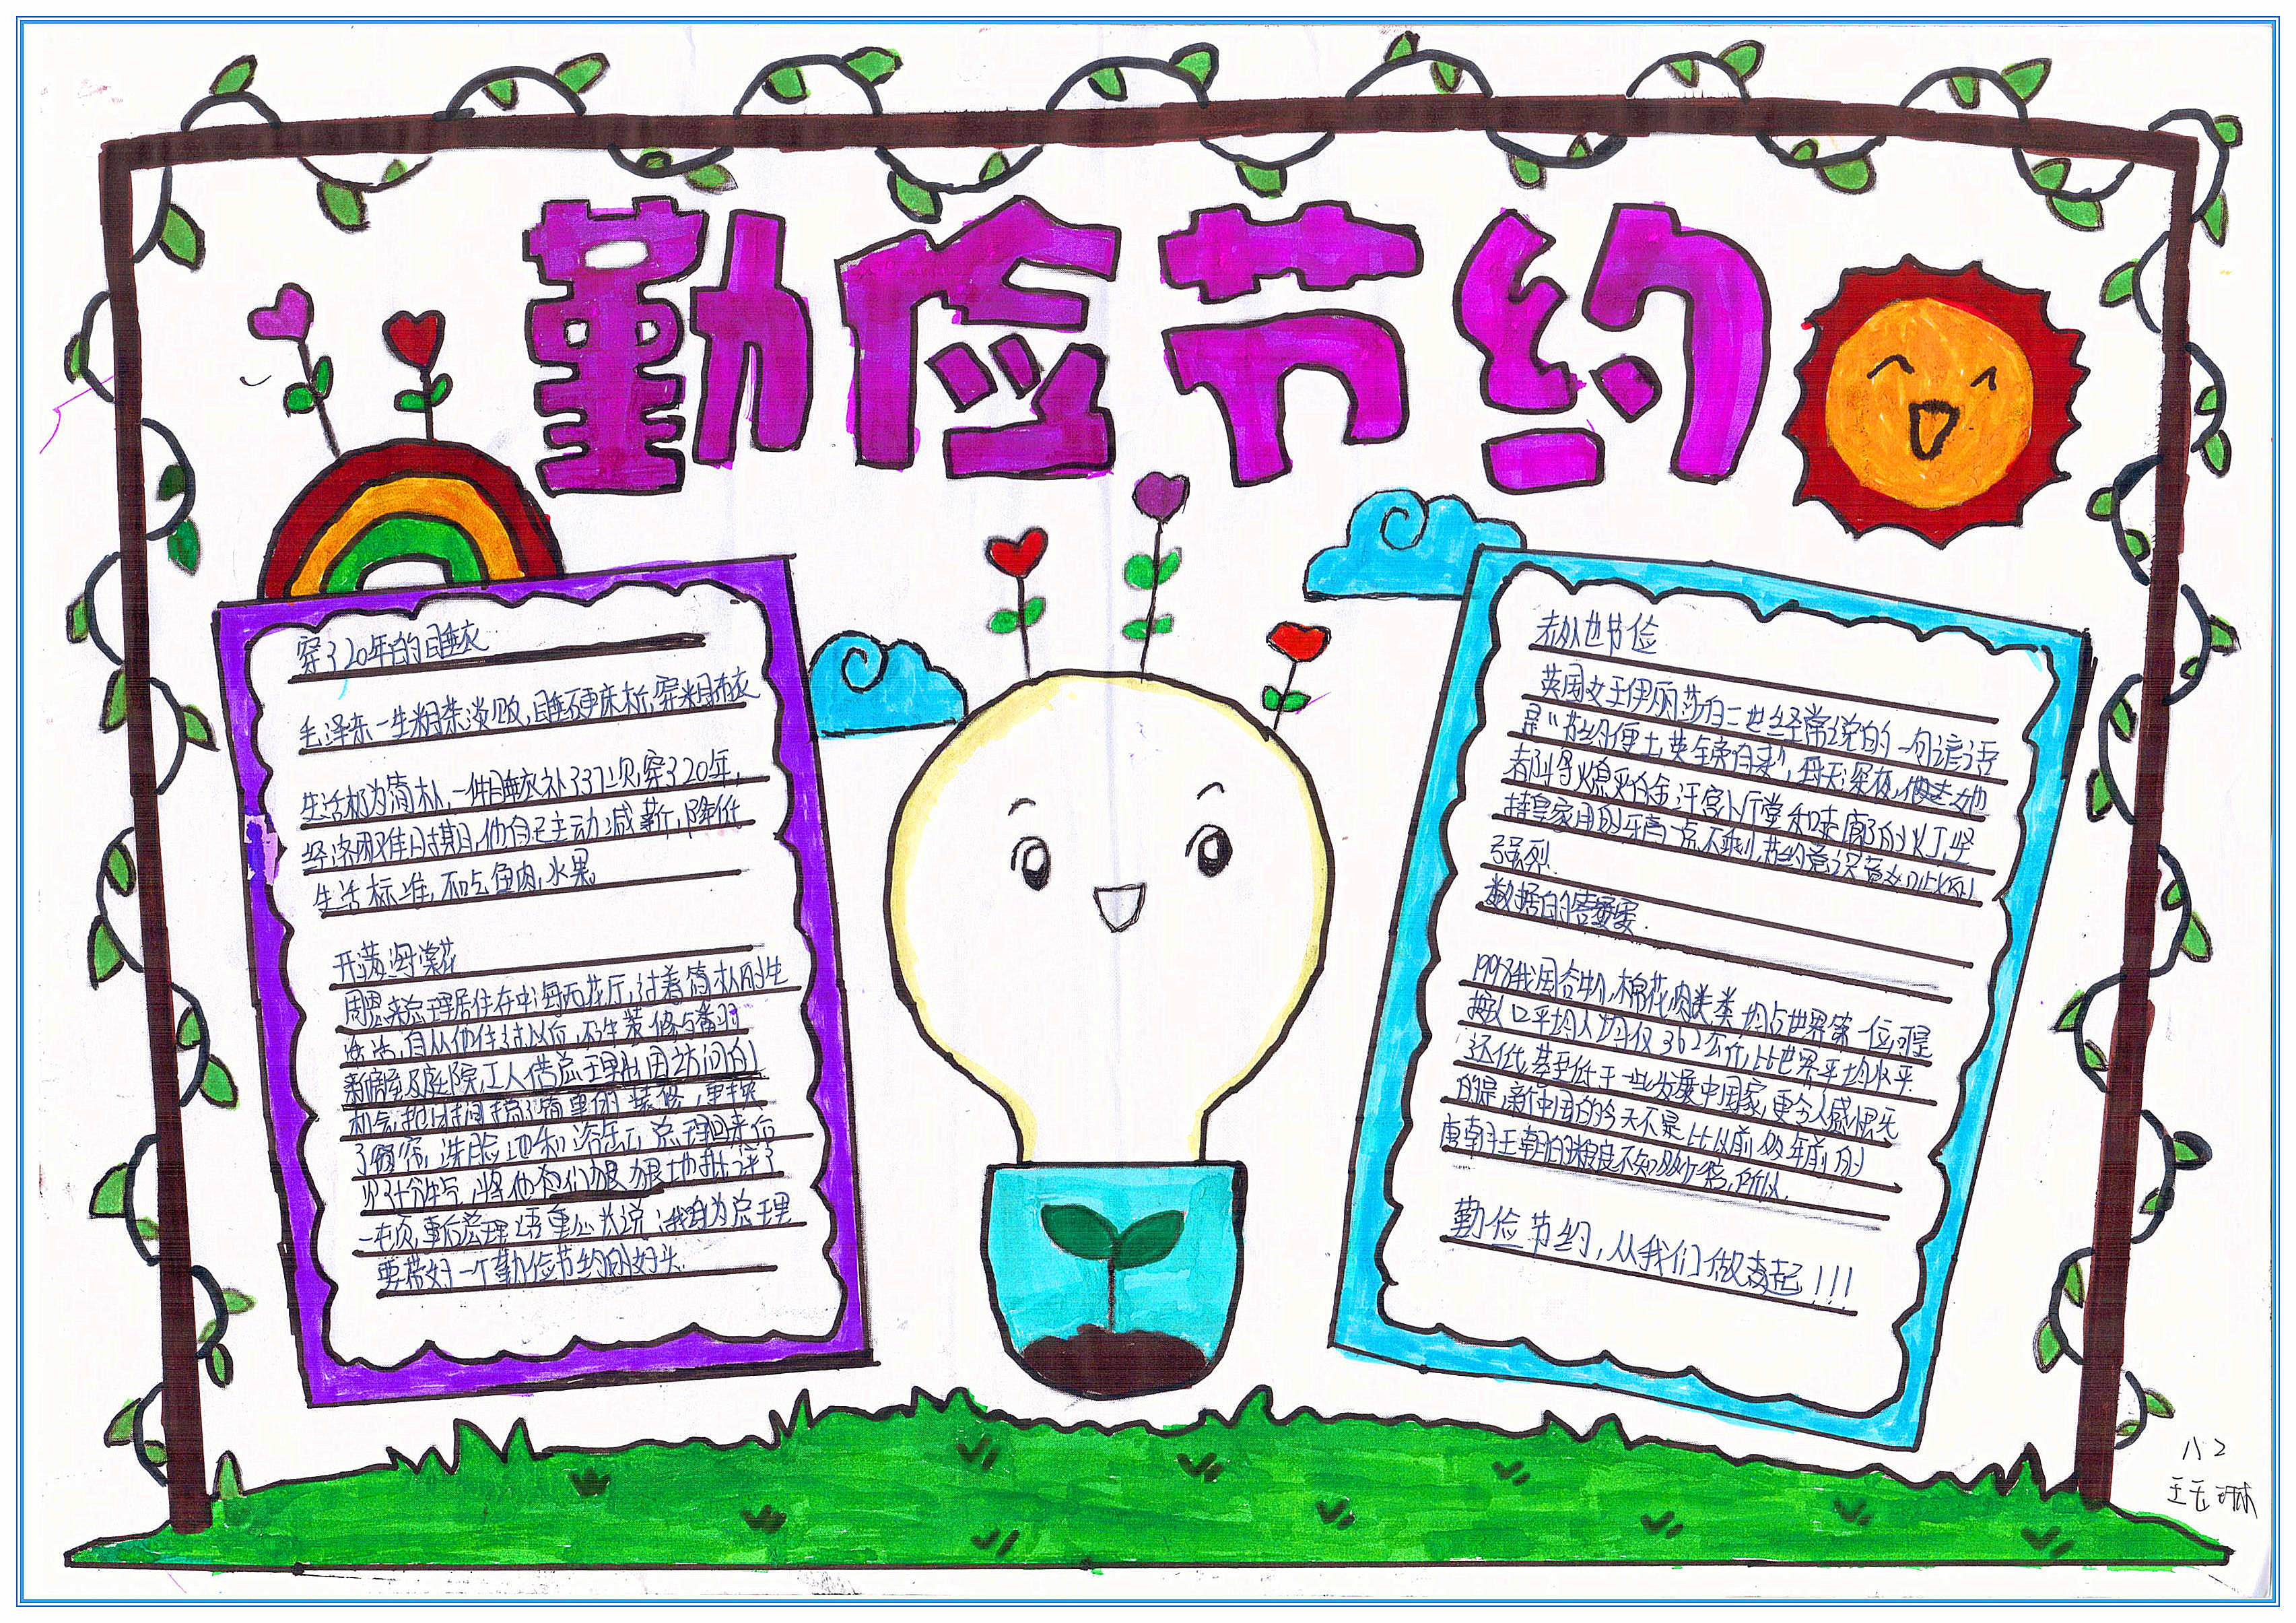 勤俭节约
穿了20年的睡衣
毛泽东一生粗茶淡饭,睡硬床板,穿粗布衣
生活极为简朴,一件睡衣补了37次,穿了20年,
经济困难时期,他自己主动减薪,降低
生活标准,不吃鱼肉,水果。
开满海棠花
周恩来总理居住在中海西花厅,过着简朴的生
活,自从他住过以后,不许装修与翻羽
新房屋及庭院,工人借总理出国访问的
机会,把时间搞了简单的装修,更换
了窗帘,洗脸池和浴缸,总理回来后
十分生气,将他们狠狠地批评了
一顿,事后总理语重心长说:我身为总理
要带好一个勤俭节约的好头.
表外也节俭
英国女王伊丽莎白二世经常说的一句谚语
是"节约便士,英全帝自来",每天深夜,她
都熄灭白金汉宫小厅堂和走廊的灯,坚
持皇家用的牙膏一点不剩,节约意识
强烈.
数据的
1998我国谷物,棉花,肉类类均占世界第一位,可是
按人口平均人均仅362公斤,比世界平均水平
还低,甚至低于一些发展中国家,更令人感慨
的是,新中国的今天不是比以前
唐朝王朝的粮食不知,所以,
勤俭节约,从我们做起!!!
八2